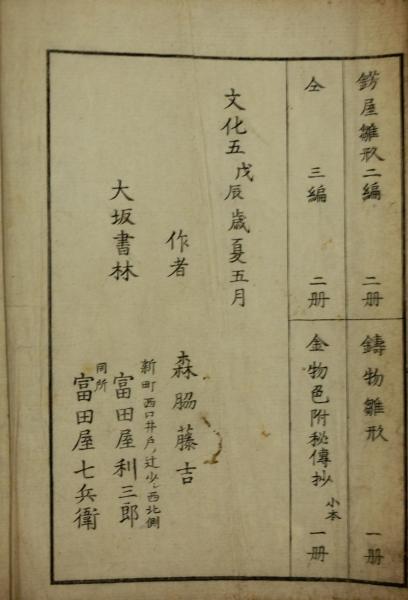 錺屋雛形二編 二册
鑄物雛形 一册
仝 三編 二册
金物色附秘傳抄 小本 一册
文化五戊辰歳夏五月
作者 森脇藤吉
大坂書林
新町西口井戸ノ辻少シ西北側
富田屋利三郎
同所
富田屋七兵衛